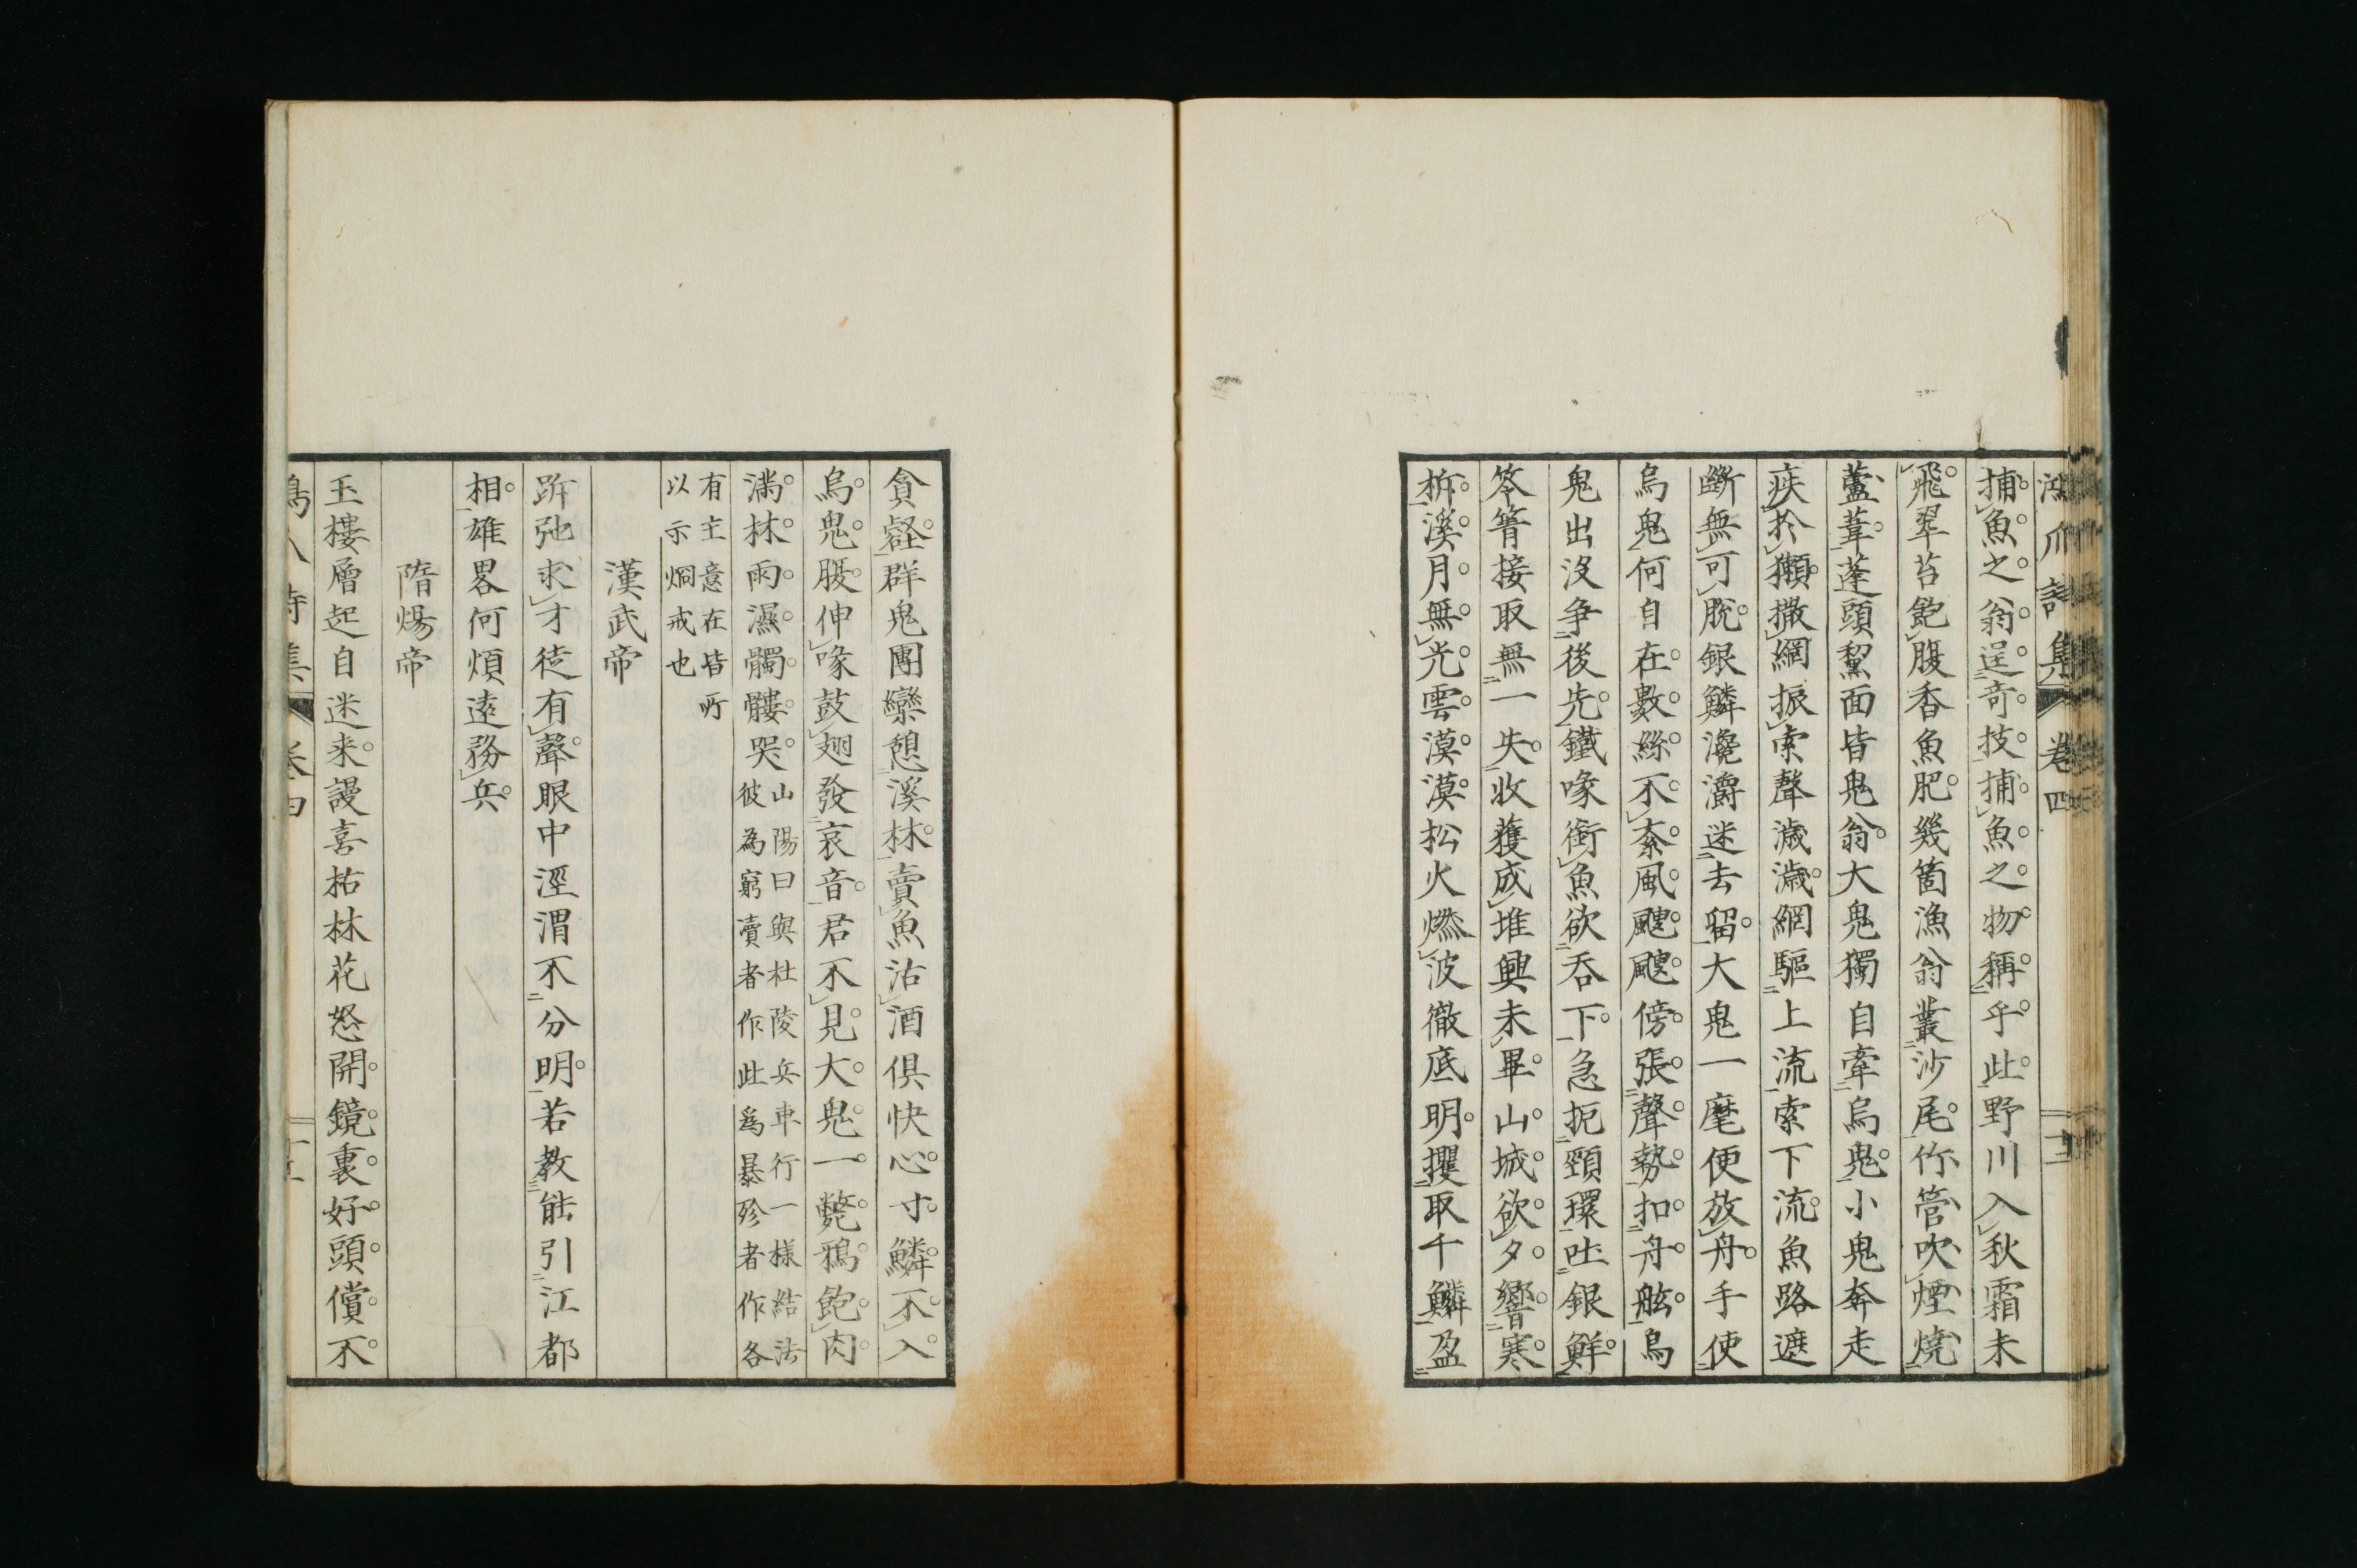 鴻爪詩集 卷四 十二
捕魚之翁逞奇技捕魚之物稱乎此野川入秋霜未
飛翠苔飽腹香魚肥幾箇漁翁叢沙尾竹管吹煙燒
蘆葦蓬頭黧面皆鬼翁大鬼獨自牽烏鬼小鬼奔走
疾於獺撒網振索聲濊濊網驅上流索下流魚路遮
斷無可脫銀鱗瀺灂迷去留大鬼一麾便放舟手使
烏鬼何自在數絲不紊風颼颼傍張聲勢扣舟舷烏
鬼出沒爭後先鐵喙銜魚欲吞下急扼頸環吐銀鮮
笭箵接取無一失收獲成堆興未畢山城欲夕響寒
柝溪月無光雲漠漠松火燃波徹底明攫取千鱗盈
貪壑群鬼團欒憩溪林賣魚沽酒俱快心寸鱗不入
烏鬼腹伸喙鼓翅發哀音君不見大鬼一斃鴉飽肉
滿林雨濕髑髏哭山陽曰與杜陵兵車行一樣結法
彼為窮瀆者作此爲暴殄者作各
有主意在皆所
以示烱戒也
漢武帝
跅弛求才徒有聲眼中涇渭不分明若教能引江都
相雄畧何煩遠務兵
隋煬帝
玉樓層起自迷来謾喜枯林花怒開鏡裏好頭償不